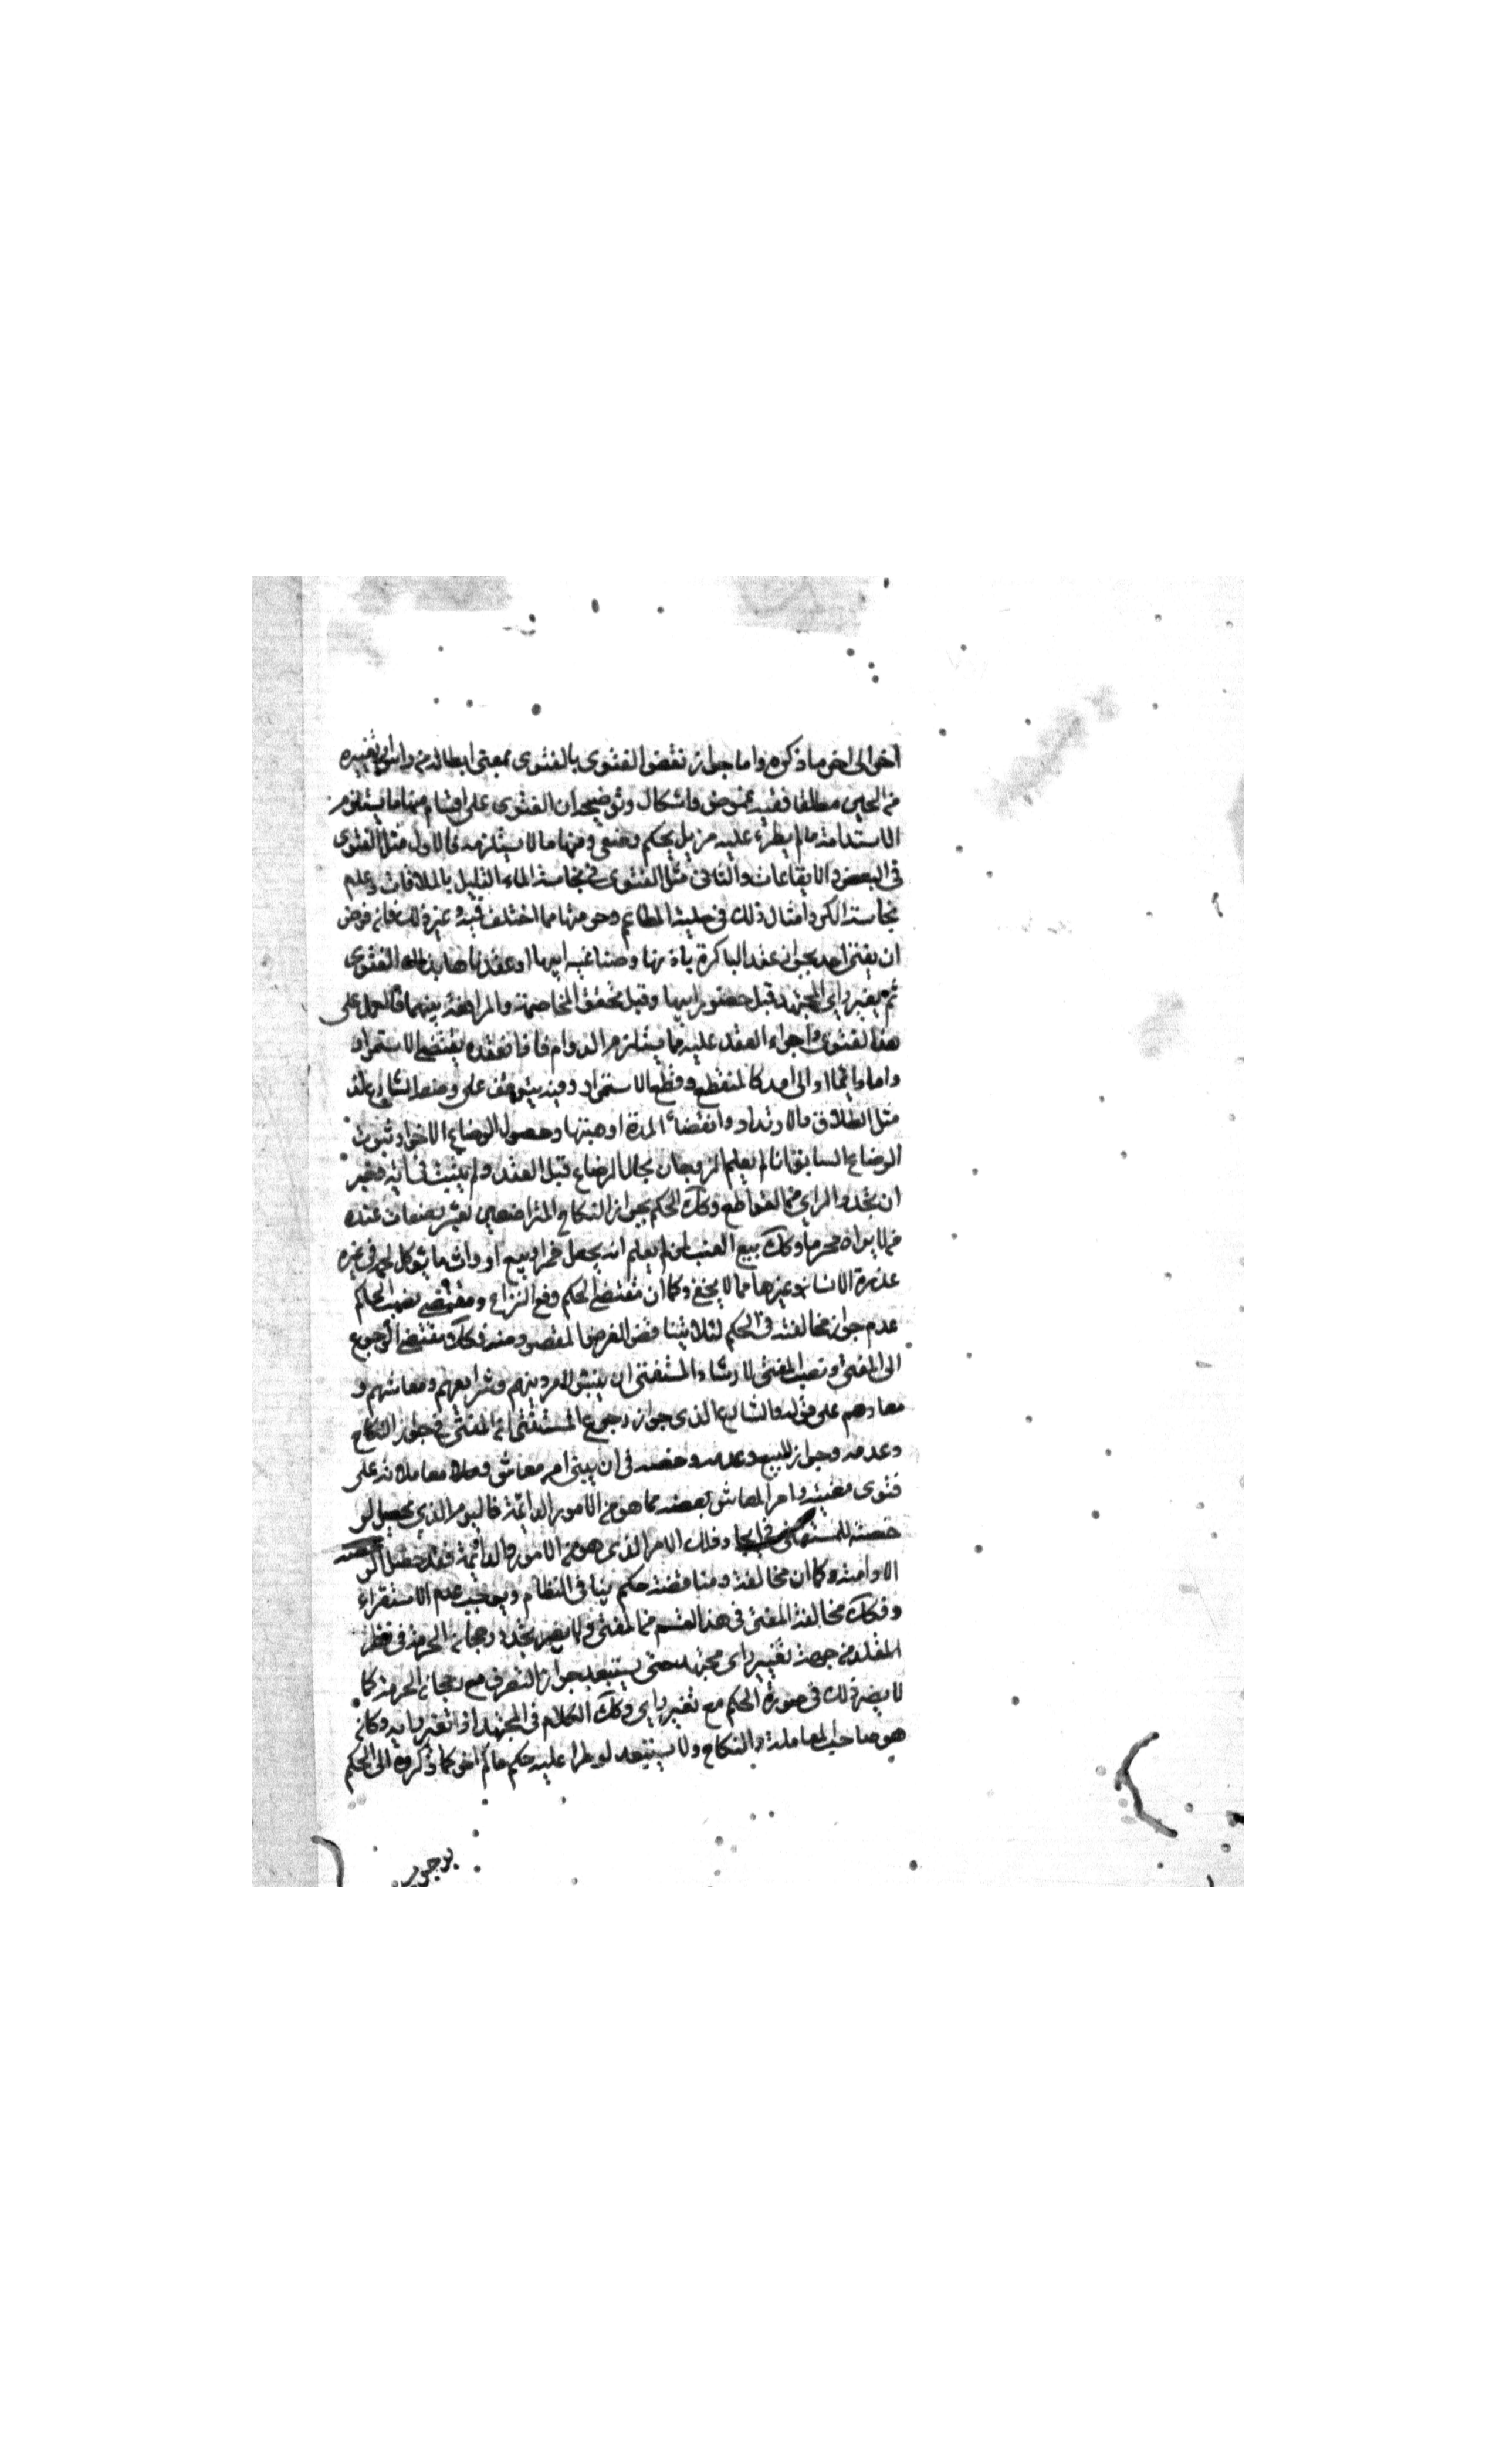 اخر الى اخر ما ذكره واما جواز نقض الفتوى بالفتوى بمعنى ابطاله من راس او تغييره
من الحين مطلقا ففيه غموض واشكال وتوضيحه ان الفتوى على اقسام منها ما يستلزم
الاستدامة ما لم يطرء عليه مزيل بحكم وضعي ومنها ما لا يستلزمه فالاول مثل الفتوى
في البعض والايقاعات والثاني مثل الفتوى في نجاسة الماء القليل بالملاقات وعدم
نجاسة الكر وامثال ذلك في حلية المطاعم وحرمتها مما اختلف فيه وغير ذلك فاذا فرض
ان يفتي احد بجواز عقد الباكرة باذنها وضا غيبه ابيها او عقدناها بهذه الفتوى
ثم تغير راى المجتهد قبل حضور ابيها وقبل تحقق المخاصمة والمرافعة بينهما فالعمل على
هذه الفتوى واجراء العقد عليه مما يستلزم الدوام فاذا نعقده يقتضى الاستمرار
واما دائما او الى امد كالمنقطع وقطع الاستمرار دفيه يتوقف على وضع الشارع
مثل الطلاق والارتداد وانقضاء المدة او هبتها وحصول الرضاع الاخر او ثبوت
الرضاع السابق اذا لم يعلم الزوجان بحال الرضاع قبل العقد ولم يثبت
ان تجدد الراي مما القواطع وكك الحكم بجواز النكاح المتراضعين بعشر رضعات عنده
من لا يراه محرما وكك بيع العنب لمن لم يعلم انه يجعل خمرا وبيع اوراث ما يؤكل لحمه
عذرة الانسان وغيرها مما لا يخفى وكما ان مقتضى الحكم رفع النزاع ومقتضى نصب الحاكم
عدم جواز مخالفته في الحكم لئلا يتناقض الغرض المقصود منه فكك مقتضى الرجوع
الى المفتى ونصب المفتى لارشاد المستفتى ان ينبش لامر دينهم وشرايعهم ومعاشهم و
معادهم على قوله والشارع الذى جواز رجوع المستفتى الى المفتى في جواز النكاح
وعدمه وجواز البيع وعدمه رخصه في ان يبنى امر معاش ومعاملاته على
فتوى مفتيه وامر المعاش بعضه مما هو من الامور الدائمة فاليوم الذي يحصل له
وذلك الامر الذى هو من الامور الدائمة فقد حصل
الادامة وكما ان مخالفة ومناقضة حكم ينافي النظام ويوجب عدم الاستقراء
وفكك مخالفة المفتى في هذا القسم مما المفتى ولا يضر تجدد رجحان الحرمة في نظر
المقلد من جهة تغيير راى مجتهده حتى يستبعد جواز التصرف مع رجحان الحرمة كما
لا يضر ذلك في صورة الحكم مع تغير راى وكك الكلام في المجتهد اذا تغير رايه وكان
هو صاحب المعاملة والنكاح ولا يستبعد لو طرا عليه حكم حاكم اخر كما ذكره الى الحكم